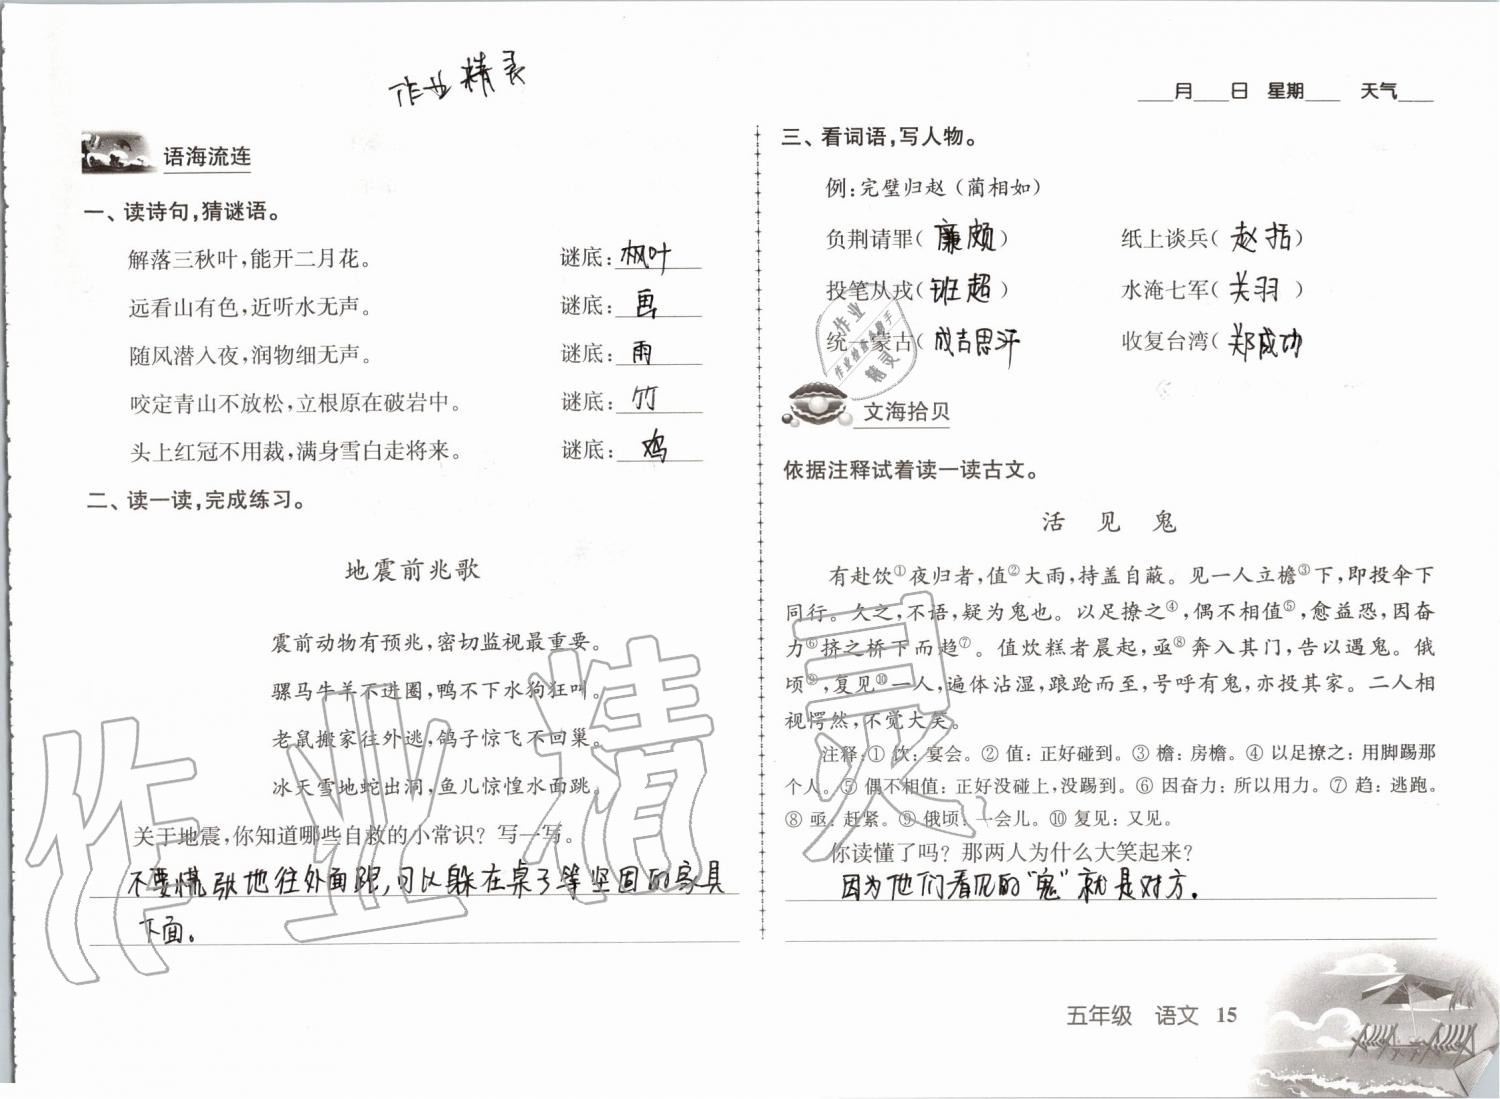 作业精灵
月 日 星期 天气
语海流连
一、读诗句,猜谜语。
解落三秋叶,能开二月花。 谜底:枫叶
远看山有色,近听水无声。 谜底:画
随风潜入夜,润物细无声。 谜底:雨
咬定青山不放松,立根原在破岩中。 谜底:竹
头上红冠不用裁,满身雪白走将来。 谜底:鸡
二、读一读,完成练习。
地震前兆歌
震前动物有预兆,密切监视最重要。
骡马牛羊不进圈,鸭不下水狗狂叫。
老鼠搬家往外逃,鸽子惊飞不回巢。
冰天雪地蛇出洞,鱼儿惊惶水面跳。
关于地震,你知道哪些自救的小常识?写一写。
不要慌张地往外面跑,可以躲在桌子等坚固的家具
下面。
三、看词语,写人物。
例:完璧归赵(蔺相如)
负荆请罪(廉颇) 纸上谈兵(赵括)
投笔从戎(班超) 水淹七军(关羽)
统一蒙古(成吉思汗 收复台湾(郑成功
文海拾贝
依据注释试着读一读古文。
活见鬼
有赴饮①夜归者,值②大雨,持盖自蔽。见一人立檐③下,即投伞下
同行。久之,不语,疑为鬼也。以足撩之④,偶不相值⑤,愈益恐,因奋
力⑥挤之桥下而趋⑦。值炊糕者晨起,亟⑧奔入其门,告以遇鬼。俄
顷⑨,复见⑩一人,遍体沾湿,踉跄而至,号呼有鬼,亦投其家。二人相
视愕然,不觉大笑。
注释:① 饮:宴会。② 值:正好碰到。③ 檐:房檐。④ 以足撩之:用脚踢那
个人。⑤ 偶不相值:正好没碰上,没踢到。⑥ 因奋力:所以用力。⑦ 趋:逃跑。
⑧ 亟:赶紧。⑨ 俄顷:一会儿。⑩ 复见:又见。
你读懂了吗?那两人为什么大笑起来?
因为他们看见的“鬼”就是对方。
五年级 语文 15
作业精灵
作业
作业检查小助手
精灵